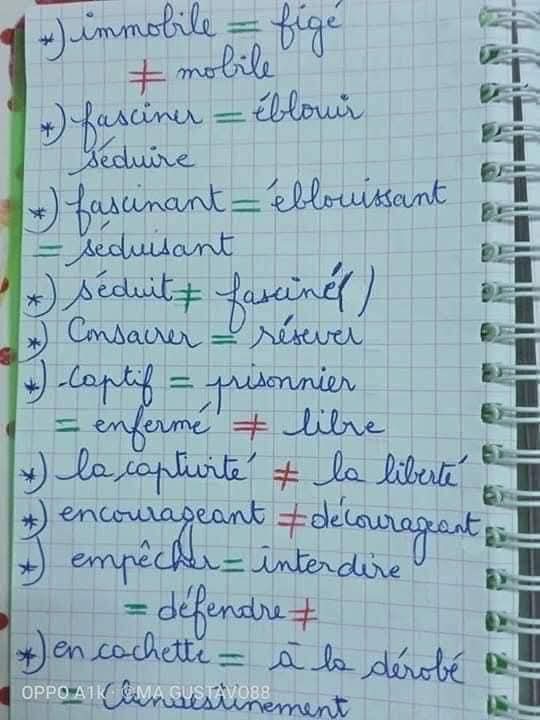 *) immobile = figé
≠ mobile
*) fasciner = éblouir
séduire
*) fascinant = éblouissant
= séduisant
*) séduit ≠ fasciné( )
*) Consacrer = réserver
*) captif = prisonnier
= enfermé ≠ libre
*) la captivité ≠ la liberté
*) encourageant ≠ décourageant
*) empêcher = interdire
= défendre ≠
*) en cachette = à la dérobé
= Clandestinement
OPPO A1k · ©MA GUSTAVO88